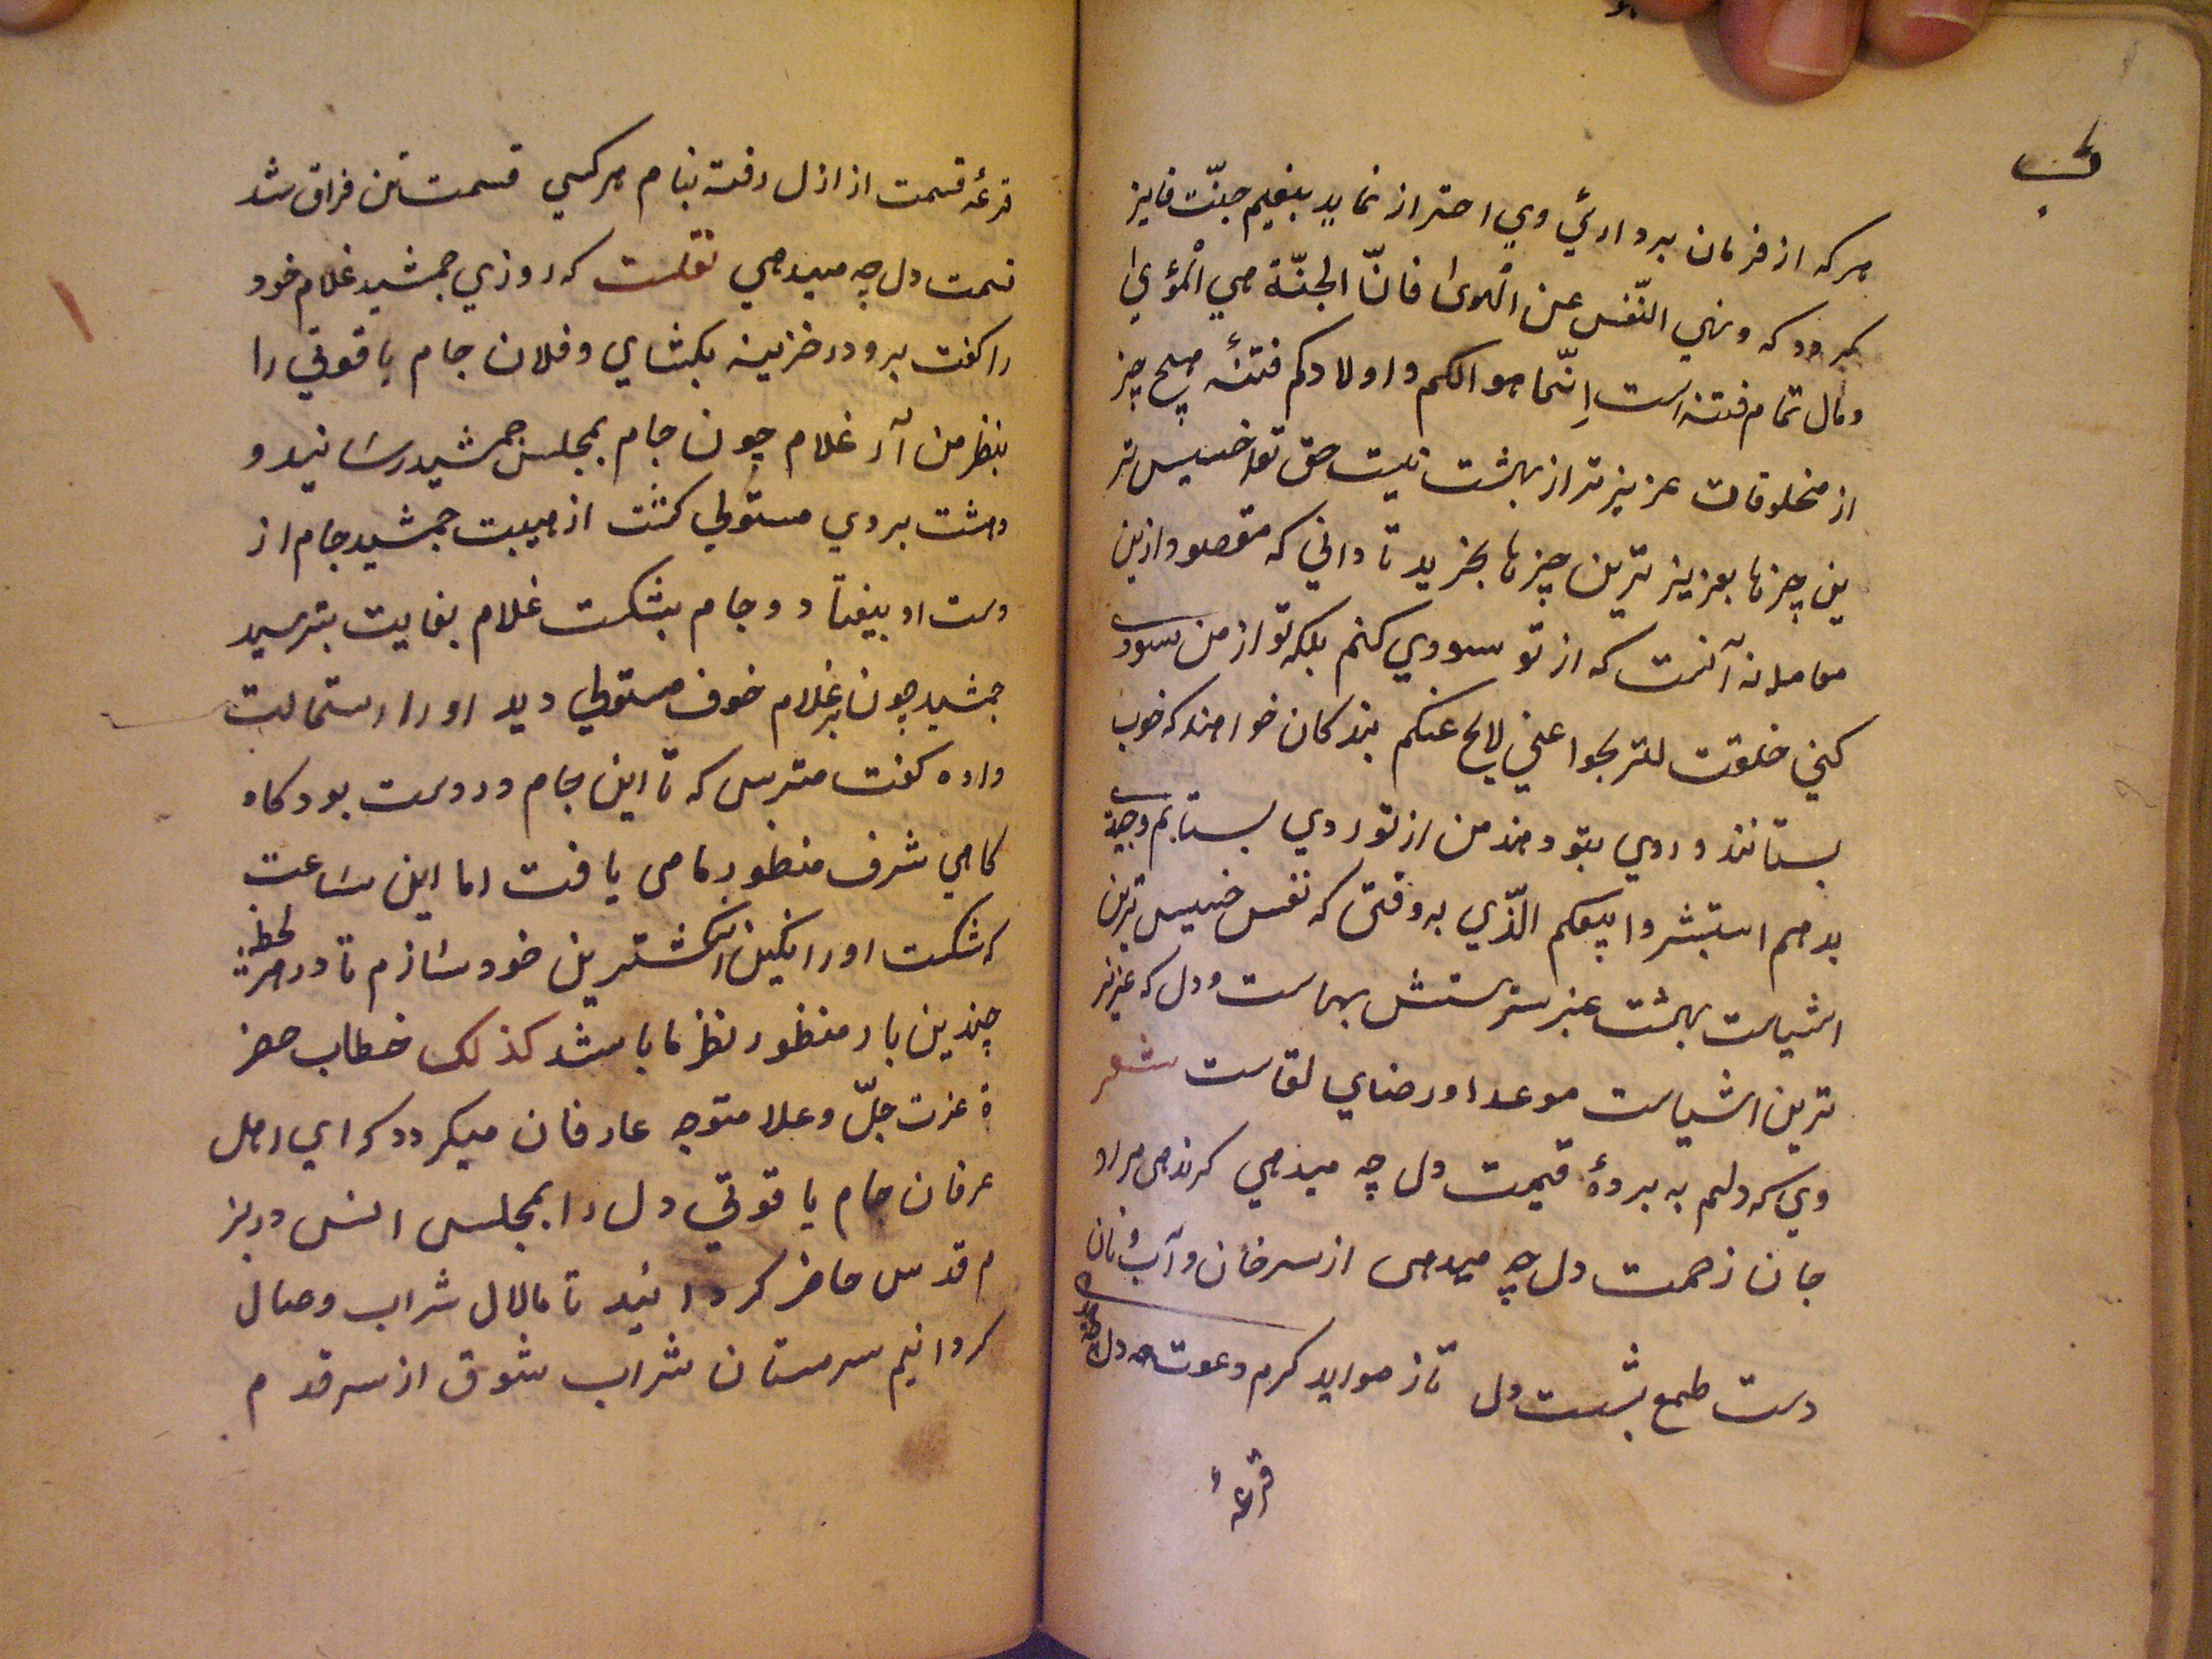 هرکه از فرمان بردارئي وي احتراز نمايد بنعيم جنّت فايز
کردد که ونهي النّفس عن الهوىٰ فانّ الجنّة هي المؤىٰ
ومال تمام فتنه است اِنّما اموالکم واولادکم فتنهٔ هيچ چيز
از مخلوقات عزيزتر از بهشت نيست حق تعه خسيس تر
ين چيزها بعزيز ترين چيزها بخريد تا داني که مقصود ازين
معامله نه آنست که از تو سودي کنم بلکه تو از من سود
کني خلقت لتربحوا عني لابح عنکم بندکان خواهند که خوب
بستانند و ردي بتو دهند من از تو ردي بستانم وجيد
بدهم استبشروا ببيعکم الّذي به وقتی که نفس خسيس ترين
اشياست بهشت عنبر سرشتش بهاست ودل که عزيز
ترين اشياست موعد او رضاي لقاست شعر
وي که دلم به بردهٔ قيمت دل چه ميدهي کرندهی مراد
جان زحمت دل چه ميدهی از سر خان وآب ونان
دست طمع بشست دل تا ز موايد کرم دعوت دل چه ميدهی
قرعهٔ
قرعهٔ قسمت از ازل رفته بنام هرکسي قسمت من فراق شد
قسمت دل چه ميدهي نقلست که روزي جمشيد غلام خود
را کفت برو در خزينه بکشاي وفلان جام ياقوتي را
بنظر من آر غلام چون جام بمجلس جمشيد رسانيد و
دهشت بروي مستولي کشت از هيبت جمشيد جام از
دست او بيفتاد وجام بشکست غلام بغايت بترسيد
جمشيد چون بر غلام خوف مستولي ديد او را استمالت
داده کفت مترس که تا اين جام درست بود کاه
کاهي شرف منظور ما مي يافت اما اين ساعت
که شکست او را نکين انکشترين خود سازم تا در هر لحظه
چندين بار منظور نظر ما باشد کذلک خطاب حضر
ة عزت جلّ وعلا متوجه عارفان ميکردد که اي اهل
عرفان جام ياقوتي دل را بمجلس انس در بز
م قدس حاضر کردانيد تا مالامال شراب وصال
کردانيم سرمستان شراب شوق از سر قدم